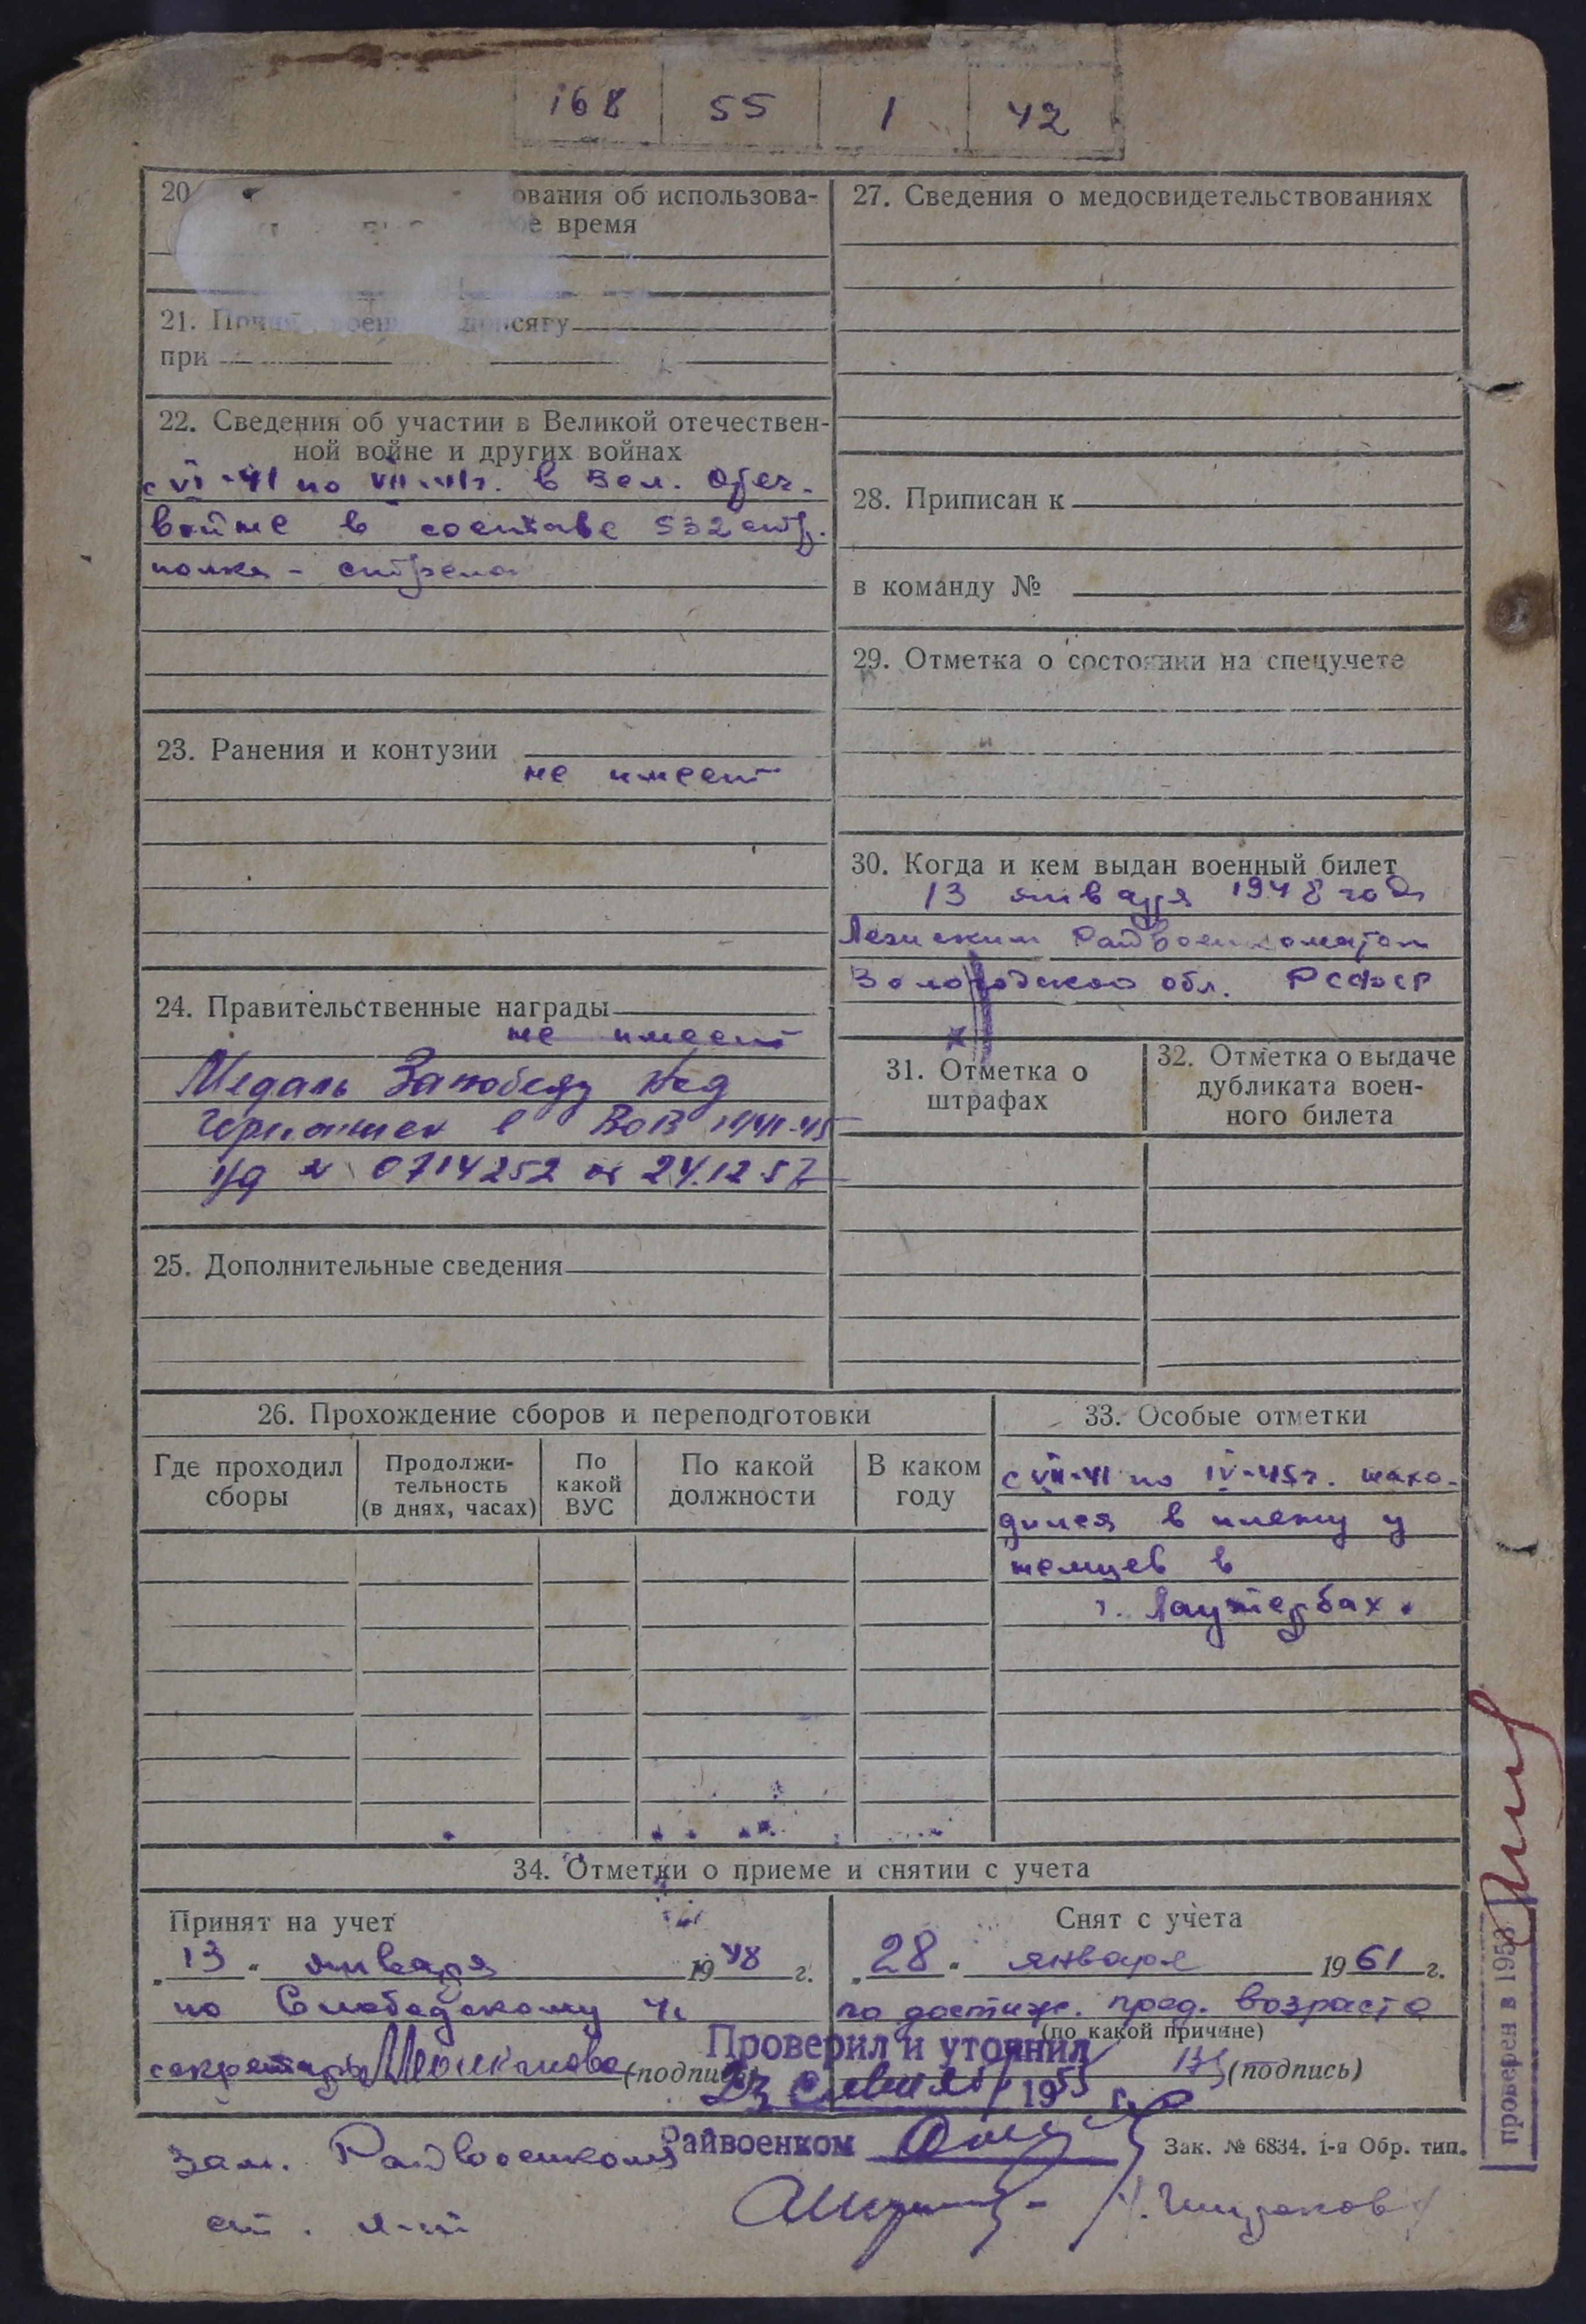 168 55 1 42
20
ования об использова-
е время
21. присягу
при
22. Сведения об участии в Великой отечествен-
ной войне и других войнах
с VI-41 по VII-41г. в Вел. Отеч.
войне в составе 532 стр.
полка - стрелок
23. Ранения и контузии
не имеет
24. Правительственные награды
не имеет
Медаль За победу над
Германией в ВОВ 1941-45
уд № 0714252 от 24.12.57
25. Дополнительные сведения
27. Сведения о медосвидетельствованиях
28. Приписан к
в команду №
29. Отметка о состоянии на спецучете
30. Когда и кем выдан военный билет
13 января 1948 года
Райвоенкоматом
Вологодской обл. РСФСР
31. Отметка о
штрафах
32. Отметка о выдаче
дубликата воен-
ного билета
26. Прохождение сборов и переподготовки
Где проходил
сборы
Продолжи-
тельность
(в днях, часах)
По
какой
ВУС
По какой
должности
В каком
году
33. Особые отметки
с VII-41 по IV-45г. нахо-
дился в плену у
немцев в
г. Лаутербах.
34. Отметки о приеме и снятии с учета
Принят на учет
"13" января 1948 г.
по Слободскому
секретарь (подпись)
Снят с учета
"28" января 1961 г.
по достиж. пред. возраста
(по какой причине)
(подпись)
Проверил и уточнил
195 г.
Райвоенком
Зак. № 6834. 1-я Обр. тип.
зам. Райвоенкома
ст. л-т
проверен в 1953